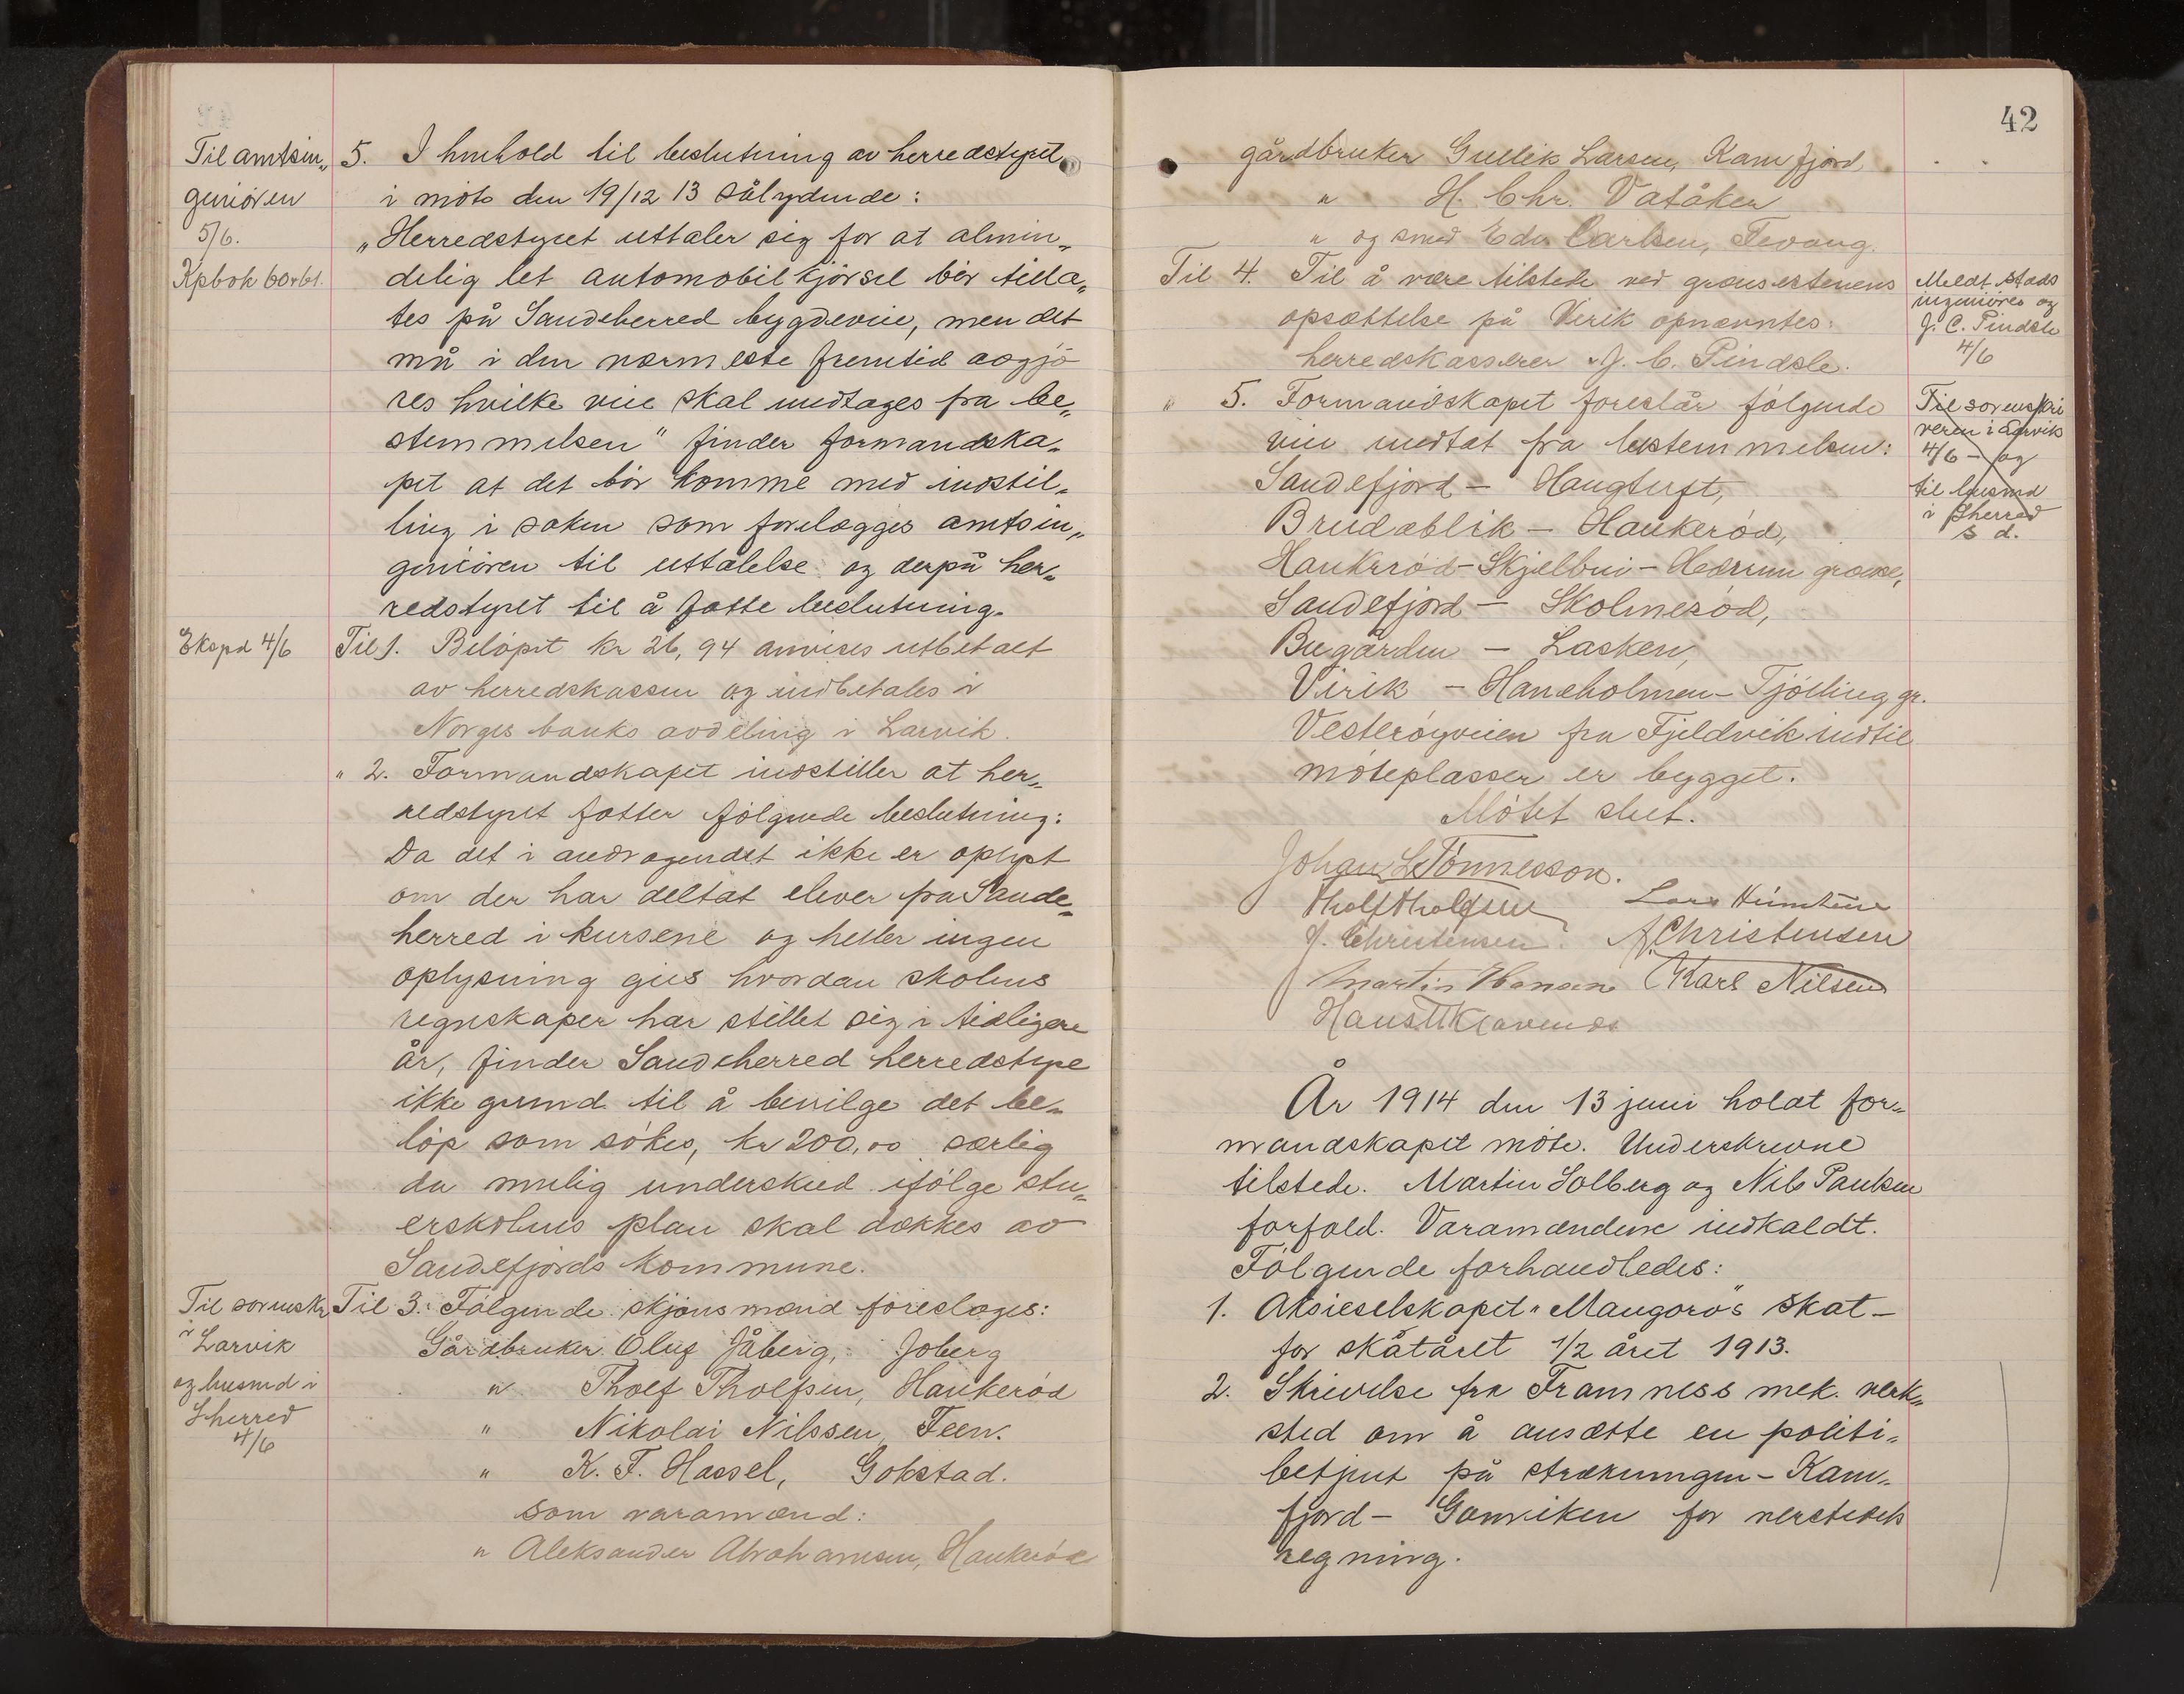 Til amtsin„
geniören
5/6.
Kpbok 60+61.
5. I henhold til beslutning av herredstyret
i möte den 19/12 13 sålydende:
„Herredstyret uttaler sig for at almin„
delig let automobilkjörsel bör tilla„
tes på Sandeherred bygdeveie, men det
må i den nærmeste fremtid avgjö
res hvilke veie skal undtages fra be„
stemmelsen" finder formandska„
pet at det bör komme med indstil„
ling i saken som forelægges amtsin„
geniören til uttalelse og derpå her„
redstyret til å fatte beslutning.
Ekspd 4/6
Til 1. Belöpet kr 26,94 anvises utbetalt
av herredskassen og indbetales i
Norges banks avdeling i Larvik.
" 2. Formandskapet indstiller at her„
redstyret fatter fölgende beslutning:
Da det i andragendet ikke er oplyst
om der har deltat elever fra Sande„
herred i kursene og heller ingen
oplysning gies hvordan skolens
regnskaper har stillet sig i tidligere
år, finder Sandeherred herredstyre
ikke grund til å bevilge det be„
löp som sökes, kr 200,00 særlig
da mulig underskud ifölge stu„
erskolens plan skal dækkes av
Sandefjords kommune.
Til sorenskr
i Larvik
og lensmd i
Sherred
4/6
Til 3. Fölgende skjönsmænd foreslåes:
Gårdbruker Oluf Jåberg, Joberg
" Tholf Tholfsen, Haukeröd
" Nikolai Nilssen, Feen.
" K. F. Hassel, Gokstad.
som varamænd:
" Aleksander Abrahamsen, Haukeröd
42
gårdbruker Gullik Larsen, Kamfjord
" H. Chr. Vatåker
" og smed Edv. Carlsen, Tevang.
Til 4. Til å være tilstede ved grænsestenens
opsættelse på Virik opnævntes:
herredskasserer J. C. Pindsle.
Meldt stads
ingeniören og
J. C. Pindsle
4/6
" 5. Formandskapet foreslår fölgende
veie undtat fra bestemmelsen:
Sandefjord – Haugtuft,
Brudablik – Haukeröd,
Haukeröd – Skjelbrei – Hedrum grænse,
Sandefjord – Skolmeröd,
Bugården – Lasken,
Virik – Haneholmen – Tjölling gr.
Vesteröyveien fra Fjeldvik indtil
möteplasser er bygget.
Til sorenskri
veren i Larvik
4/6 – og
til lensmd
i Sherred
s d.
Mötet slut.
Johan L Tönnesson.
Tholf Tholfsen
J. Christensen. A. Christensen
Martin Hansen Karl Nilsen
År 1914 den 13 juni holdt for„
mandskapet möte. Underskrevne
tilstede. Martin Solberg og Nils Paulsen
forfald. Varamændene indkaldt.
Fölgende forhandledes:
1. Aksieselskapet "Mangoro"s skat –
for skåtåret 1/2 året 1913.
2. Skrivelse fra Framnæss mek. verk„
sted om å ansætte en politi„
betjent på strækningen – Kam„
fjord – Ganviken for verkstedets
regning.